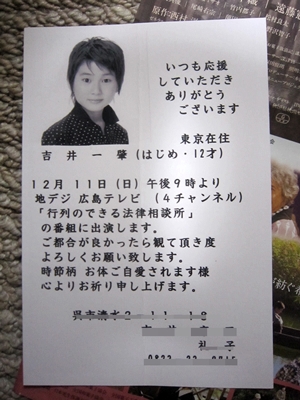 いつも応援
していただき
ありがとう
ございます
東京在住
吉井一肇(はじめ・12才)
12月11日(日)午後9時より
地デジ 広島テレビ (4チャンネル)
「行列のできる法律相談所」
の番組に出演します。
ご都合が良かったら観て頂き度
よろしくお願い致します。
時節柄 お体ご自愛されます様
心よりお祈り申し上げます。
呉市清水